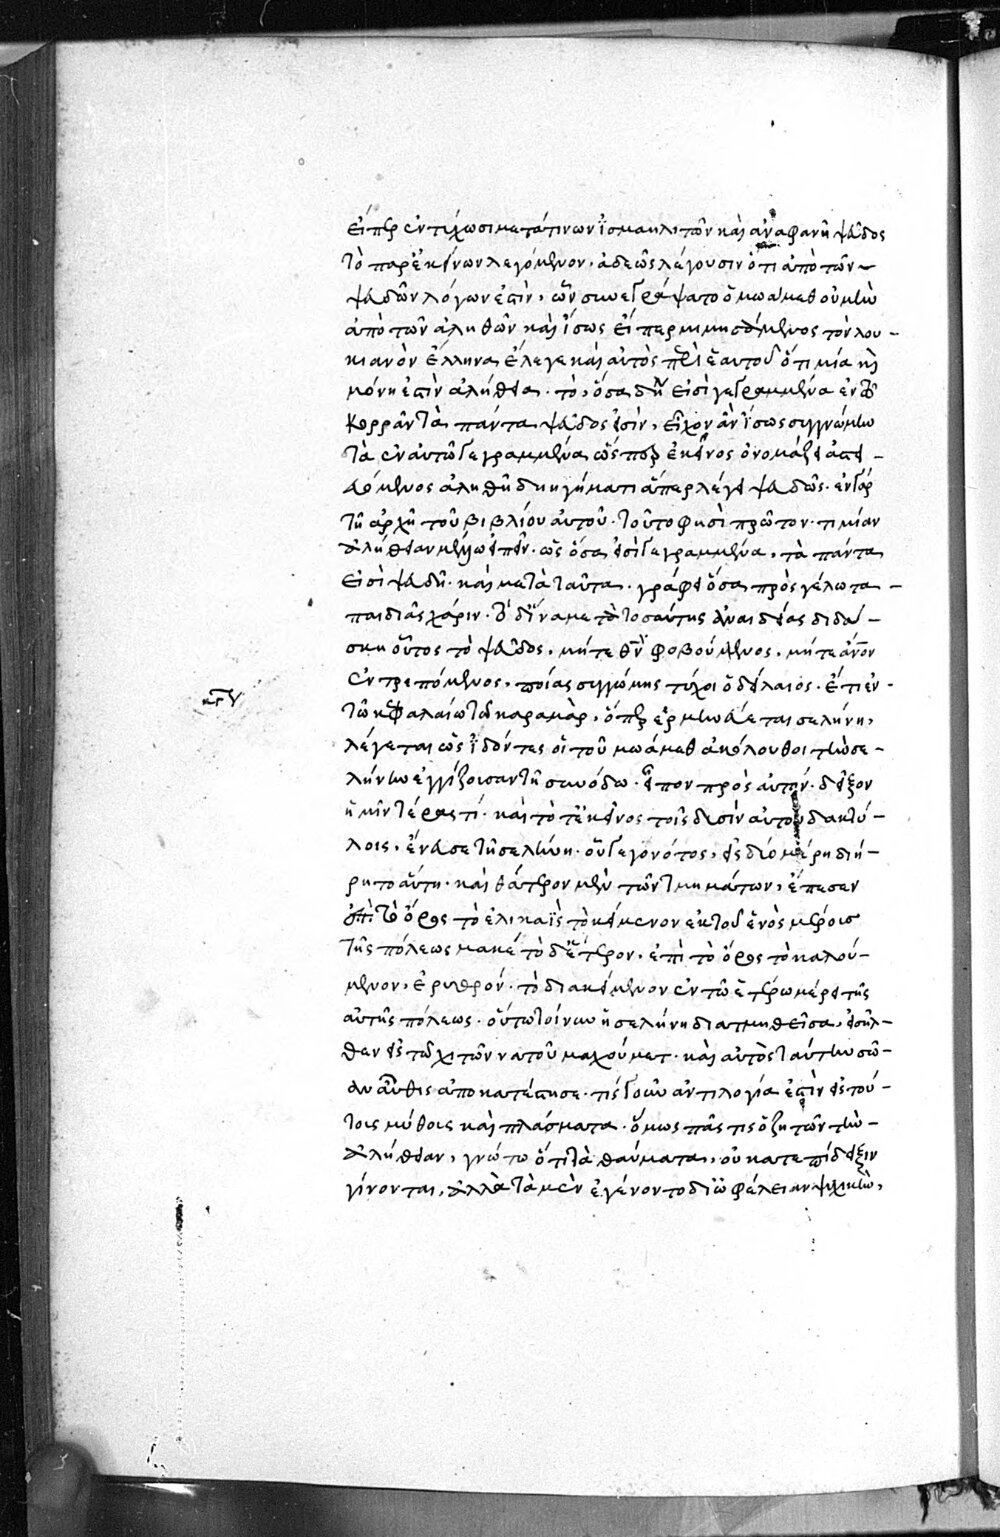 εἴπερ ἐντύχωσι μετά τινων ἰσμαηλιτῶν καὶ ἀναφανῆ ψεῦδος
τὸ παρ' ἐκείνων λεγόμενον, ἀδεῶς λέγουσιν ὅτι ἀπὸ τῶν
ψευδῶν λόγων ἐστὶν, ὧν συνεγράψατο ὁ μωάμεθ οὐ μὴν
ἀπὸ τῶν ἀληθῶν καὶ ἴσως εἴπερ μιμησάμενος τὸν λου-
κιανὸν ἕλληνα ἔλεγε καὶ αὐτὸς περὶ ἑαυτοῦ ὅτι μία καὶ
μόνη ἐστὶν ἀλήθεια. τὸ, ὅσα δὴ εἰσὶ γεγραμμένα ἐν τῷ
κορρὰν τὰ πάντα ψεῦδος εἰσίν, εἶχον ἂν ἴσως συγγνώμην
τὰ ἐν αὐτῷ γεγραμμένα ὥσπερ ἐκεῖνος ὀνομάζει ἀστει-
ευόμενος ἀληθῆ διηγήματι ἅπερ λέγει ψευδῶς. ἐν γὰρ
τῇ ἀρχῇ τοῦ βιβλίου αὐτοῦ. τοῦτο φησὶ πρῶτον. τι μίαν
ἀλήθειαν μέλλω εἰπεῖν. ὡς ὅσα εἰσὶ γεγραμμένα, τὰ πάντα
εἰσὶ ψευδῆ. καὶ μετὰ ταῦτα. γράφει ὅσα πρὸς γέλωτα
παιδιᾶς χάριν. ὁ δ' ἵνα μετὰ τοσαύτης ἀναιδείας διδά-
σκη οὗτος τὸ ψεῦδος, μήτε θν φοβούμενος, μήτε ἀνον
ἐντρεπόμενος, ποίας συγγνώμης τύχοι ὁ δείλαιος. ἔτι ἐν
τῷ κεφαλαίω τῶ καραμὰρ, ὅπερ ἑρμηνεύεται σελήνη,
λέγεται ὡς ἰδόντες οἱ τοῦ μωάμεθ ἀκόλουθοι τὴν σε-
λήνην ἐγγίζουσαν τῇ συνόδω. εἶπον πρὸς αὐτόν. δεῖξον
ἡμῖν τέρας τί. καὶ τὸ τ' ἐκεῖνος τοῖς δυσὶν αὐτοῦ δακτύ-
λοις, ἔνευσε τῇ σελήνη. οὗ γεγονότος, εἰς δύο μέρη διή-
ρητο αὕτη. καὶ θάτερον μὲν τῶν τμημάτων, ἔπεσεν
ἐπὶ τὸ ὄρος τὸ ἐλικαῒς τὸ κείμενον ἐκ τοῦ ἑνὸς μέρους
τῆς πόλεως μακέ τὸ δ' ἕτερον, ἐπὶ τὸ ὄρος τὸ καλού-
μενον, ἐρυθρόν. τὸ διακείμενον ἐν τῷ ἑτέρω μέρει τῆς
αὐτῆς πόλεως. οὕτω τοίνυν ἡ σελήνη διατμηθεῖσα, εἰσῆλ-
θεν εἰς τὸν χιτῶνα τοῦ μαχούμετ. καὶ αὐτὸς ταύτην σῶ-
αν αὖθις ἀποκατέστησε. τίς γοῦν ἀντιλογία ἐστὶν εἰς τού-
τοις μύθοις καὶ πλάσματα. ὅμως πᾶς τις ὁ ζητῶν τὴν
ἀλήθειαν, γνώτω ὅτι τὰ θαύματα, οὐ κατ' ἐπίδειξιν
γίνονται, ἀλλὰ τὰ μὲν ἐγένοντο δι' ὠφέλειαν ψυχικὴν,